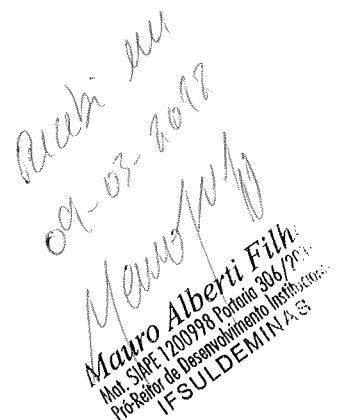 Recebi em
09-03-2012
Mauro Alberti Filh
Mat. SIAPE 1200998 Portaria 306/
Pró-Reitor de Desenvolvimento Institucional
IFSULDEMINAS